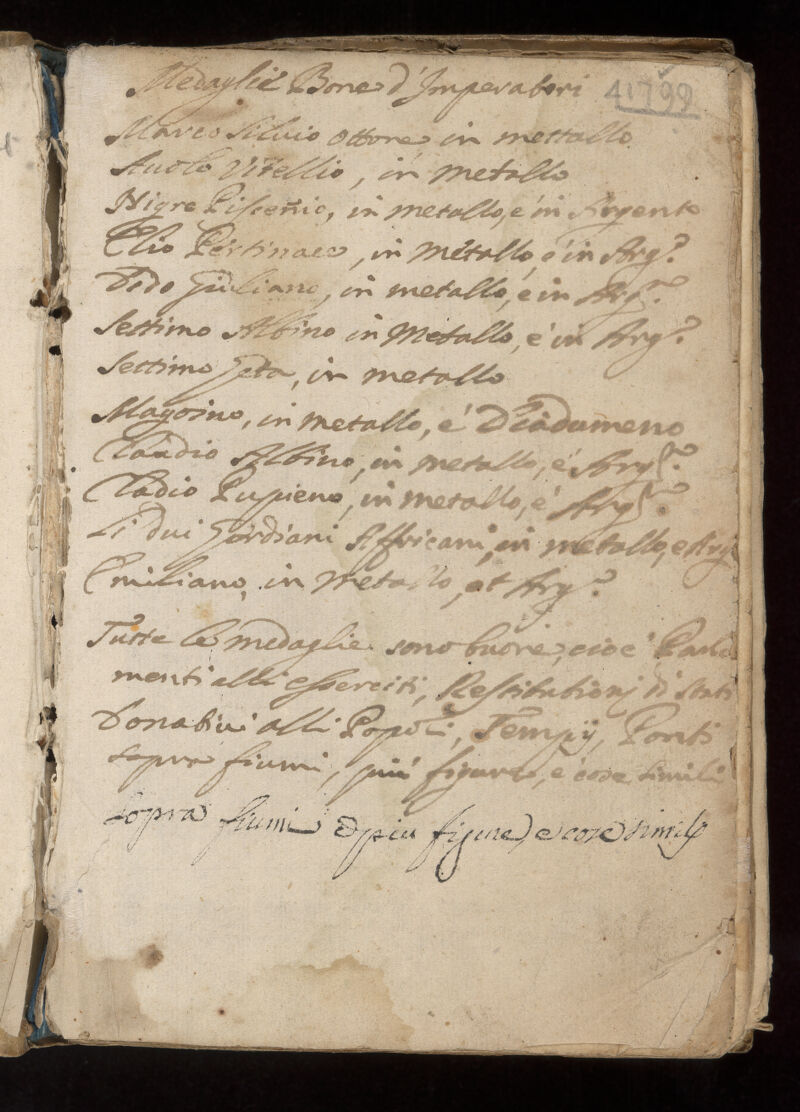 Medaglie Bone d'Imperatori 41799
Marco Silvio Ottone, in mettallo
Auolo Vitellio, in metallo
Nigro Piscenio, in metallo, é in Argento
Elio Pertinace, in metallo, é in Arg.º
Dido Giuliano, in metallo, é in Arg.º
Settimo Albino in Metallo, é in Arg.º
Settimo Geta, in metallo
Magrino, in metallo, é Diadumeno
Claudio Albino, in metallo, é Arg.º
Cladio Pupieno, in metallo, é Arg.º
Li dui Gordiani Affricani, in metallo, e Arg
Emiliano, in metallo, et Arg.º
Tutte le medaglie sono buone, cioé
menti alli esserciti, Restitutionj di Stati
Donativi alli Popoli, Tempij, Ponti
sopra fiumi, piú figure, é cose simili
sopra fiumi piu figure, e cose simili